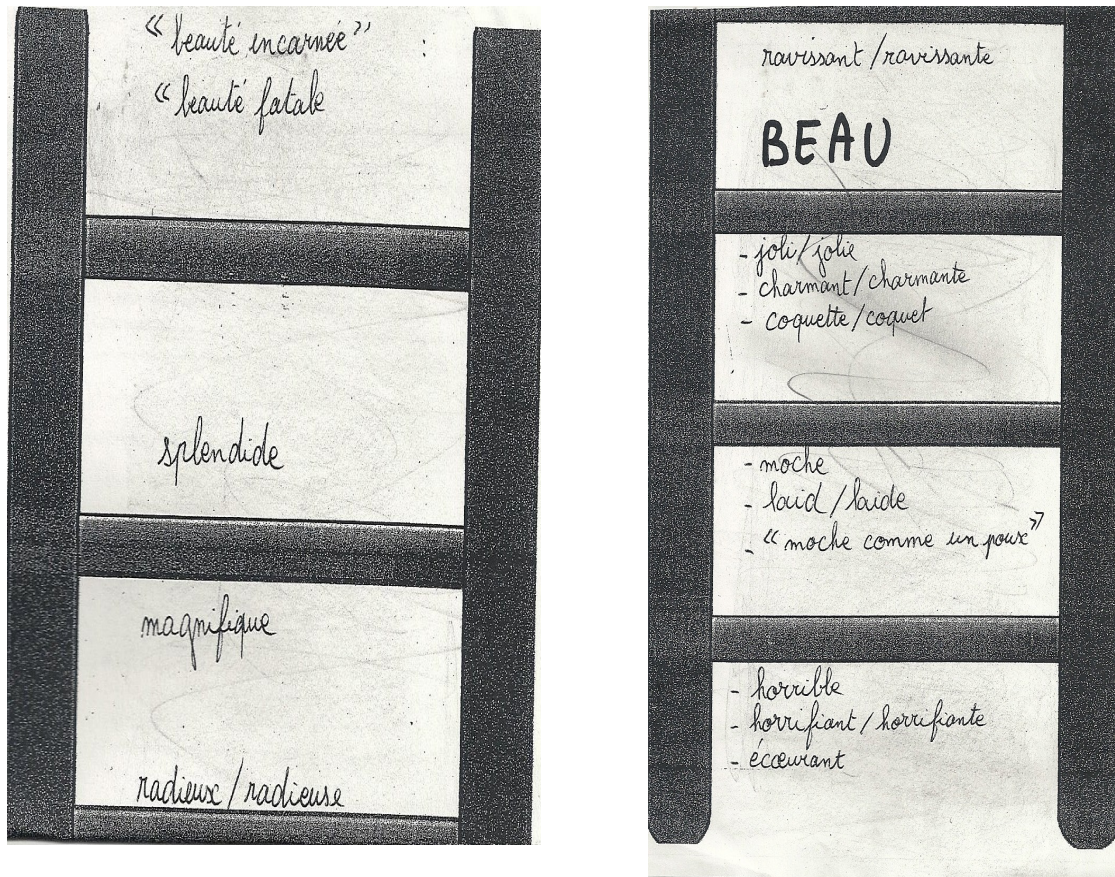 « beauté incarnée »
« beauté fatale
splendide
magnifique
radieux / radieuse
ravissant / ravissante
BEAU
- joli / jolie
- charmant / charmante
- coquette / coquet
- moche
- laid / laide
- « moche comme un poux »
- horrible
- horrifiant / horrifiante
- écœurant